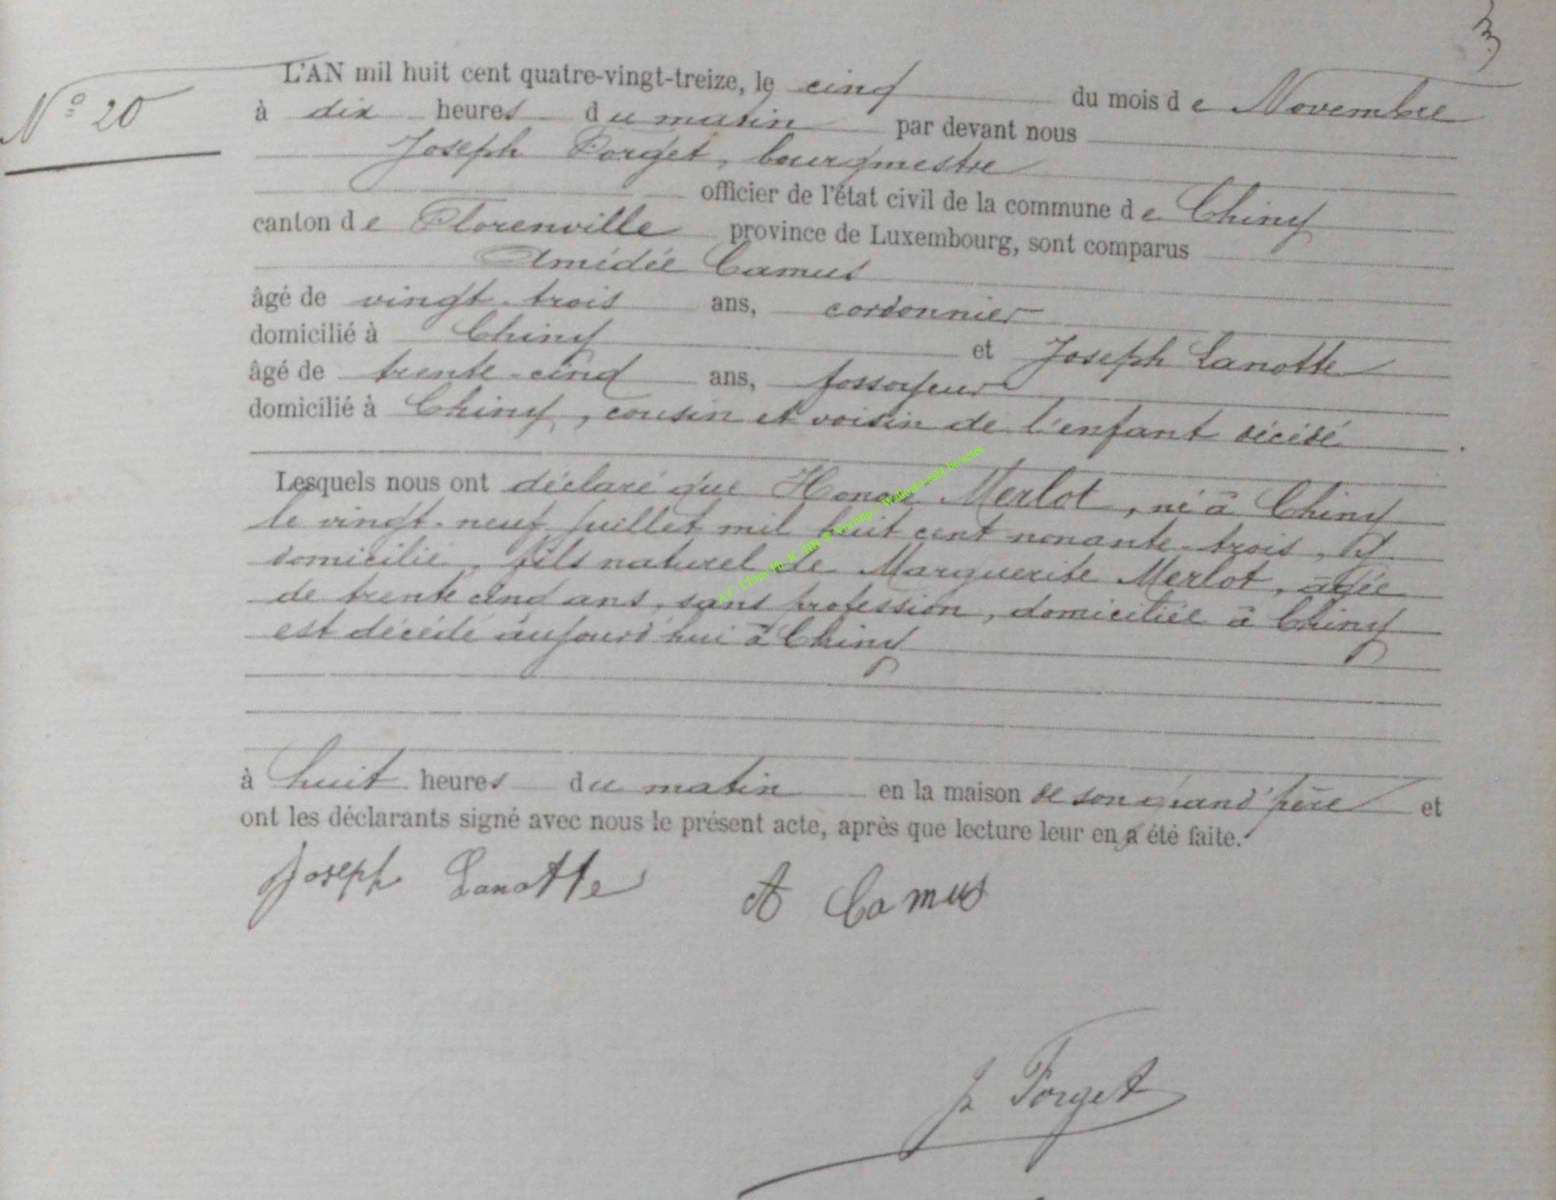 3
N° 20
L'AN mil huit cent quatre-vingt-treize, le cinq du mois de Novembre
à dix heures du matin par devant nous
Joseph Forget, bourgmestre
officier de l'état civil de la commune de Chiny
canton de Florenville province de Luxembourg, sont comparus
Amédée Camus
âgé de vingt-trois ans, cordonnier
domicilié à Chiny et Joseph Lanotte
âgé de trente-cinq ans, fossoyeur
domicilié à Chiny, cousin et voisin de l'enfant décédé.
Lesquels nous ont déclaré que Honoré Merlot, né à Chiny
le vingt-neuf juillet mil huit cent nonante-trois, y
domicilié, fils naturel de Marguerite Merlot, agée
de trente cinq ans, sans profession, domiciliée à Chiny
est décédé aujourd'hui à Chiny
à huit heures du matin en la maison de son grand'père et
ont les déclarants signé avec nous le présent acte, après que lecture leur en a été faite.
Joseph Lanotte A Camus
J Forget